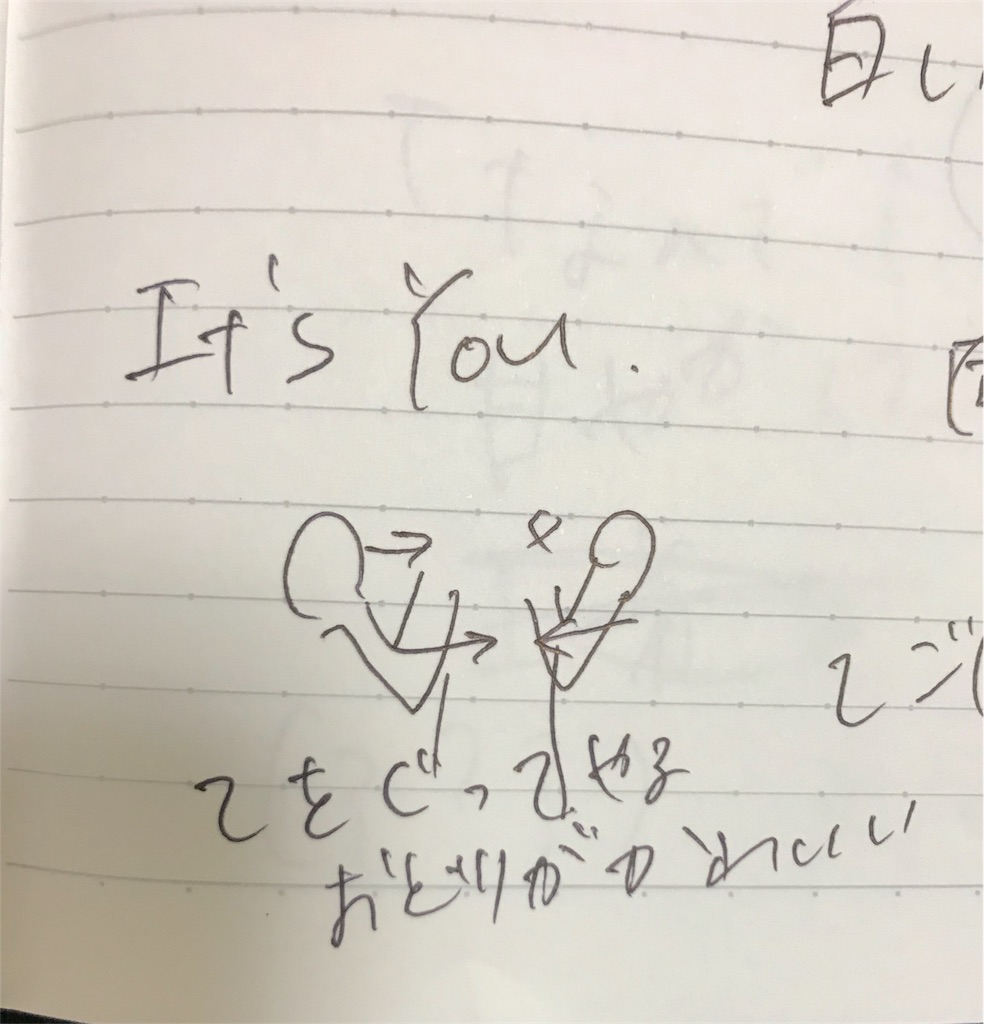 白し
It's You.
てをぐってやる
おどりがかわいい